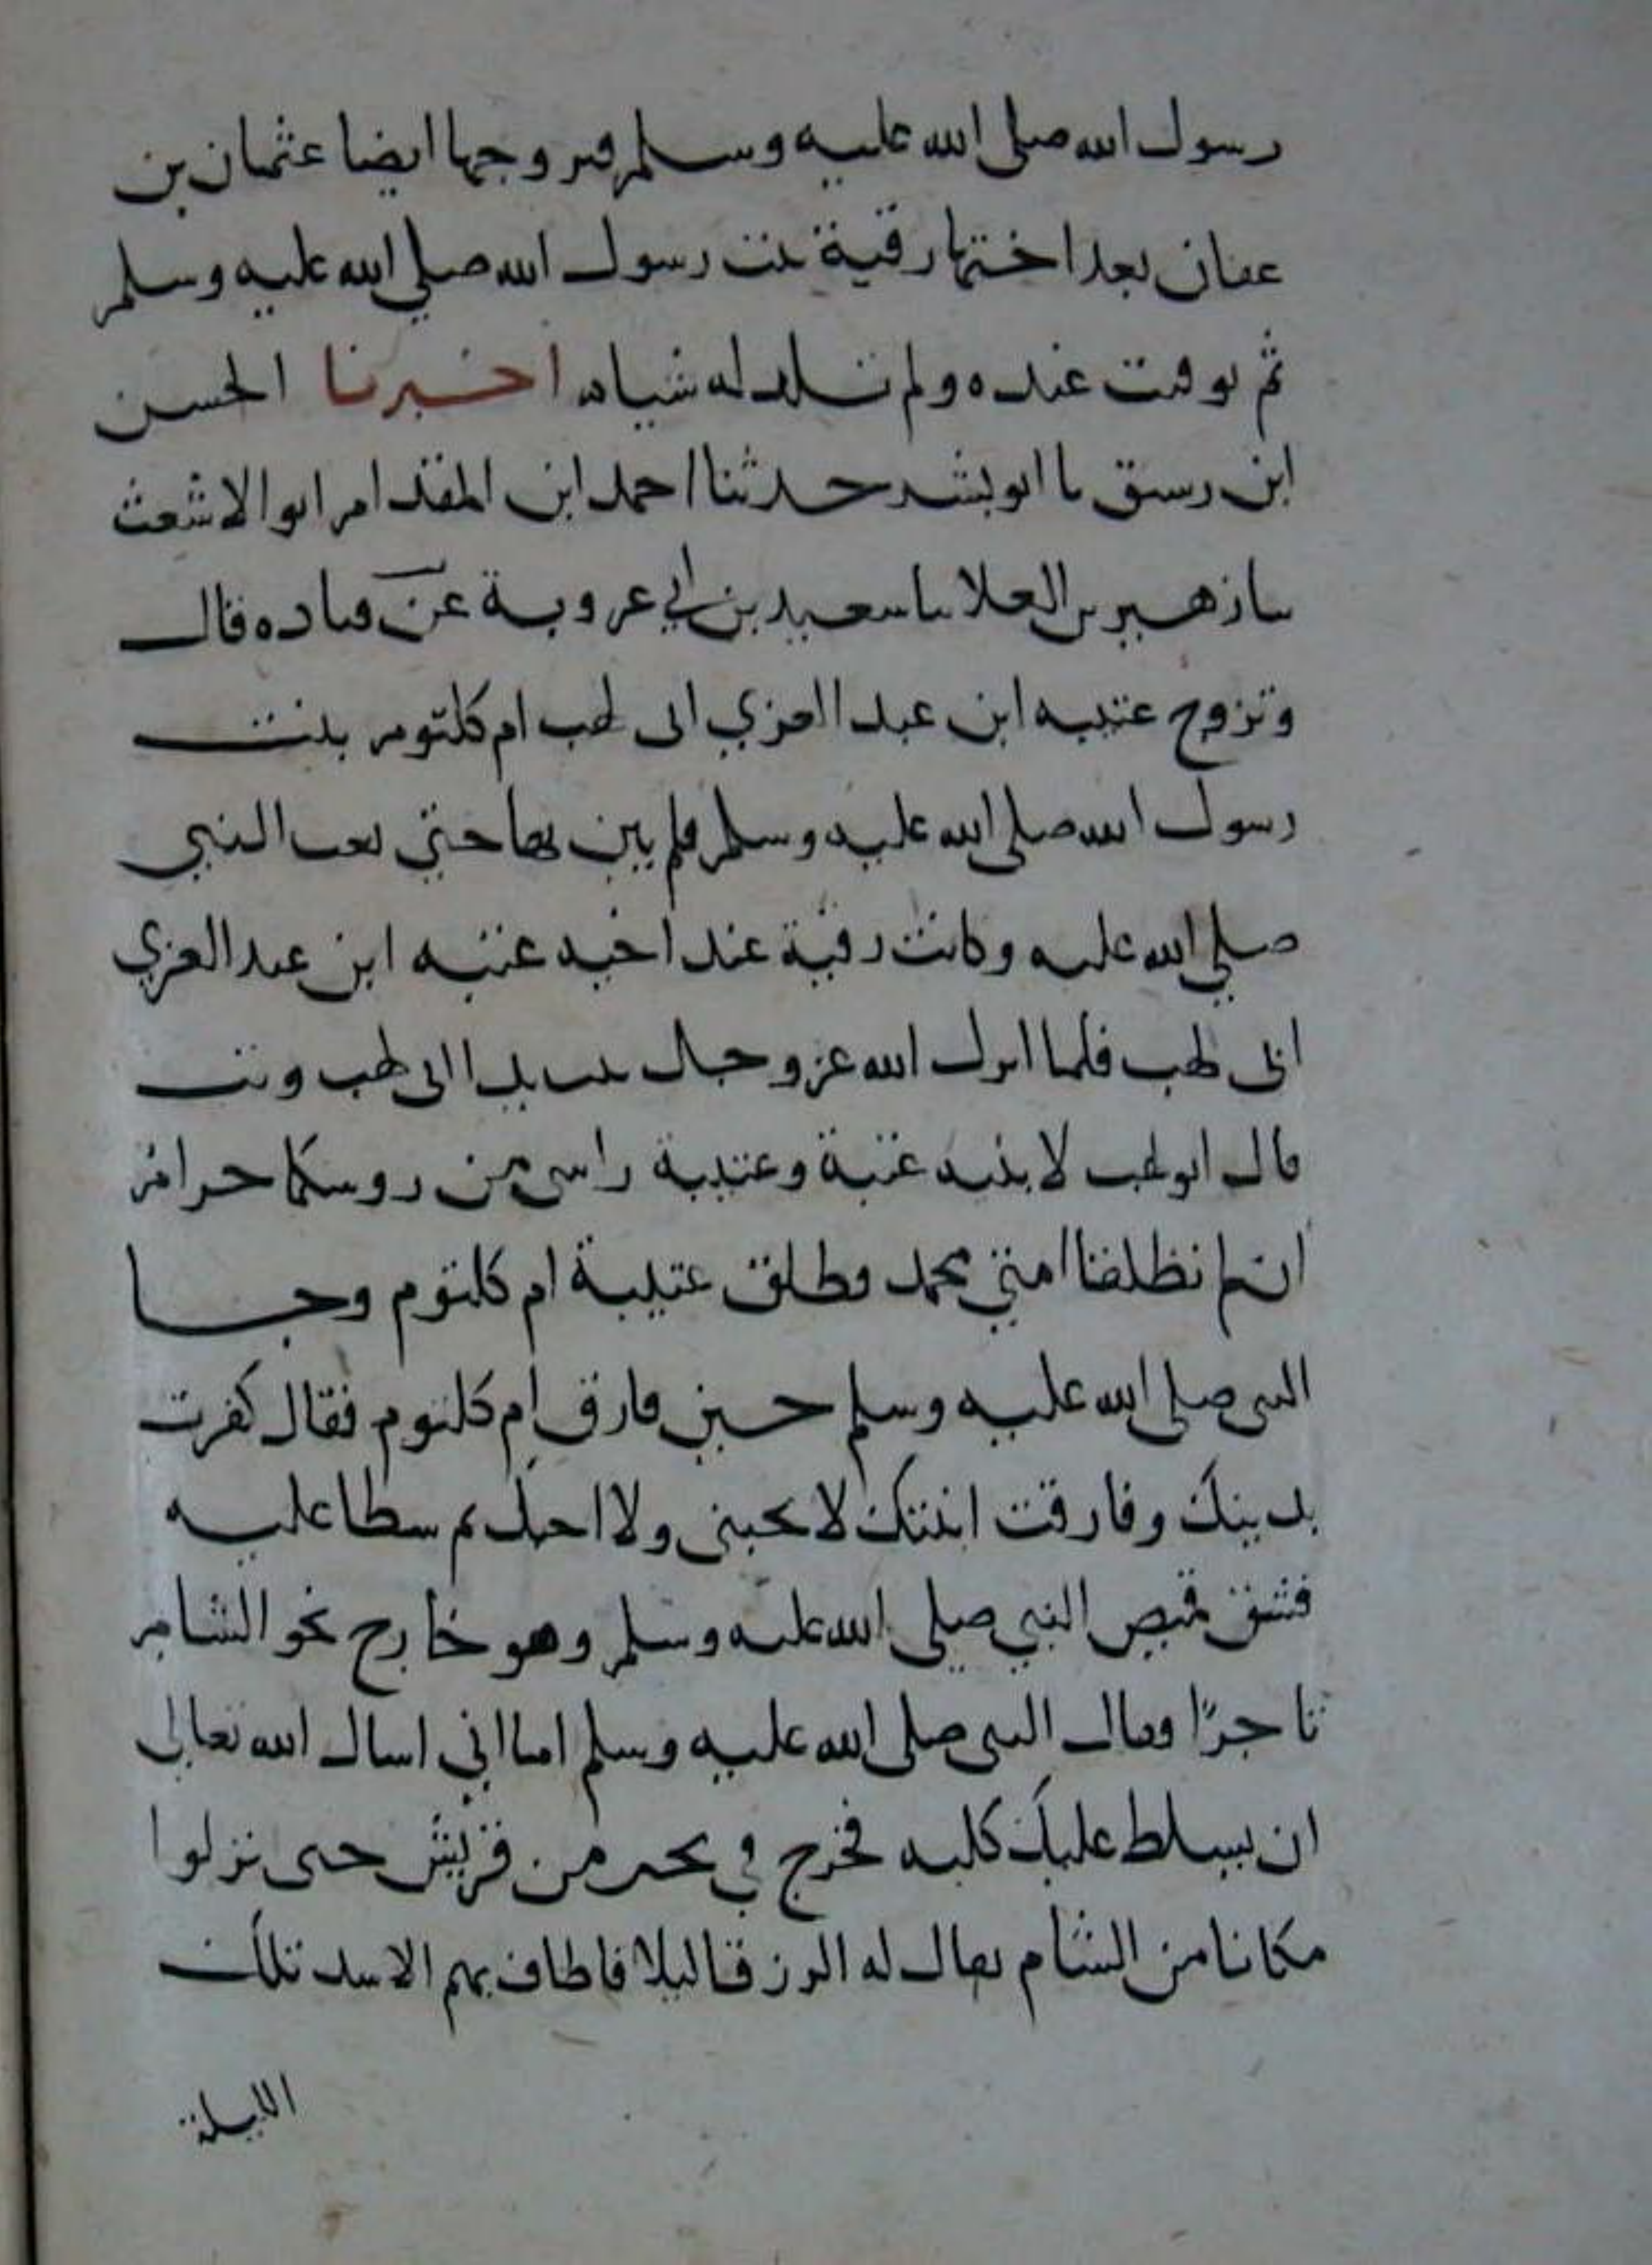 رسول الله صلى الله عليه وسلم فتزوجها ايضا عثمان بن
عفان بعد اختها رقية بنت رسول الله صلي الله عليه وسلم
ثم توفيت عنده ولم تلد له شياه اخبرنا الحسن
ابن رسيق نا ابو بشر حدثنا احمد ابن المقدام ابو الاشعث
نا زهير بن العلا نا سعيد بن ابي عروبة عن قتاده قال
وتزوج عتيبه ابن عبد العزي ابى لهب ام كلتوم بنت
رسول الله صلى الله عليه وسلم فلم يبن بها حتي بعث النبي
صلي الله عليه وكانت رقية عند اخيه عتبه ابن عبد العزي
ابى لهب فلما انزل الله عز وجل تبت يدا ابى لهب وتب
قال ابو لهب لابنيه عتبة وعتيبة راسى من روسكما حرام
ان لم تطلقا ابنتي محمد فطلق عتيبة ام كلتوم وجا
النبى صلى الله عليه وسلم حين فارق ام كلتوم فقال كفرت
بدينك وفارقت ابنتك لا تحبنى ولا احبك ثم سطا عليه
فشق قميص النبي صلى الله عليه وسلم وهو خارج نحو الشام
تاجرًا فقال النبى صلى الله عليه وسلم اما اني اسال الله تعالى
ان يسلط عليك كلبه فخرج في تجر من قريش حتى نزلوا
مكانا من الشام يقال له الزرقا ليلا فاطاف بهم الاسد تلك
الليلة